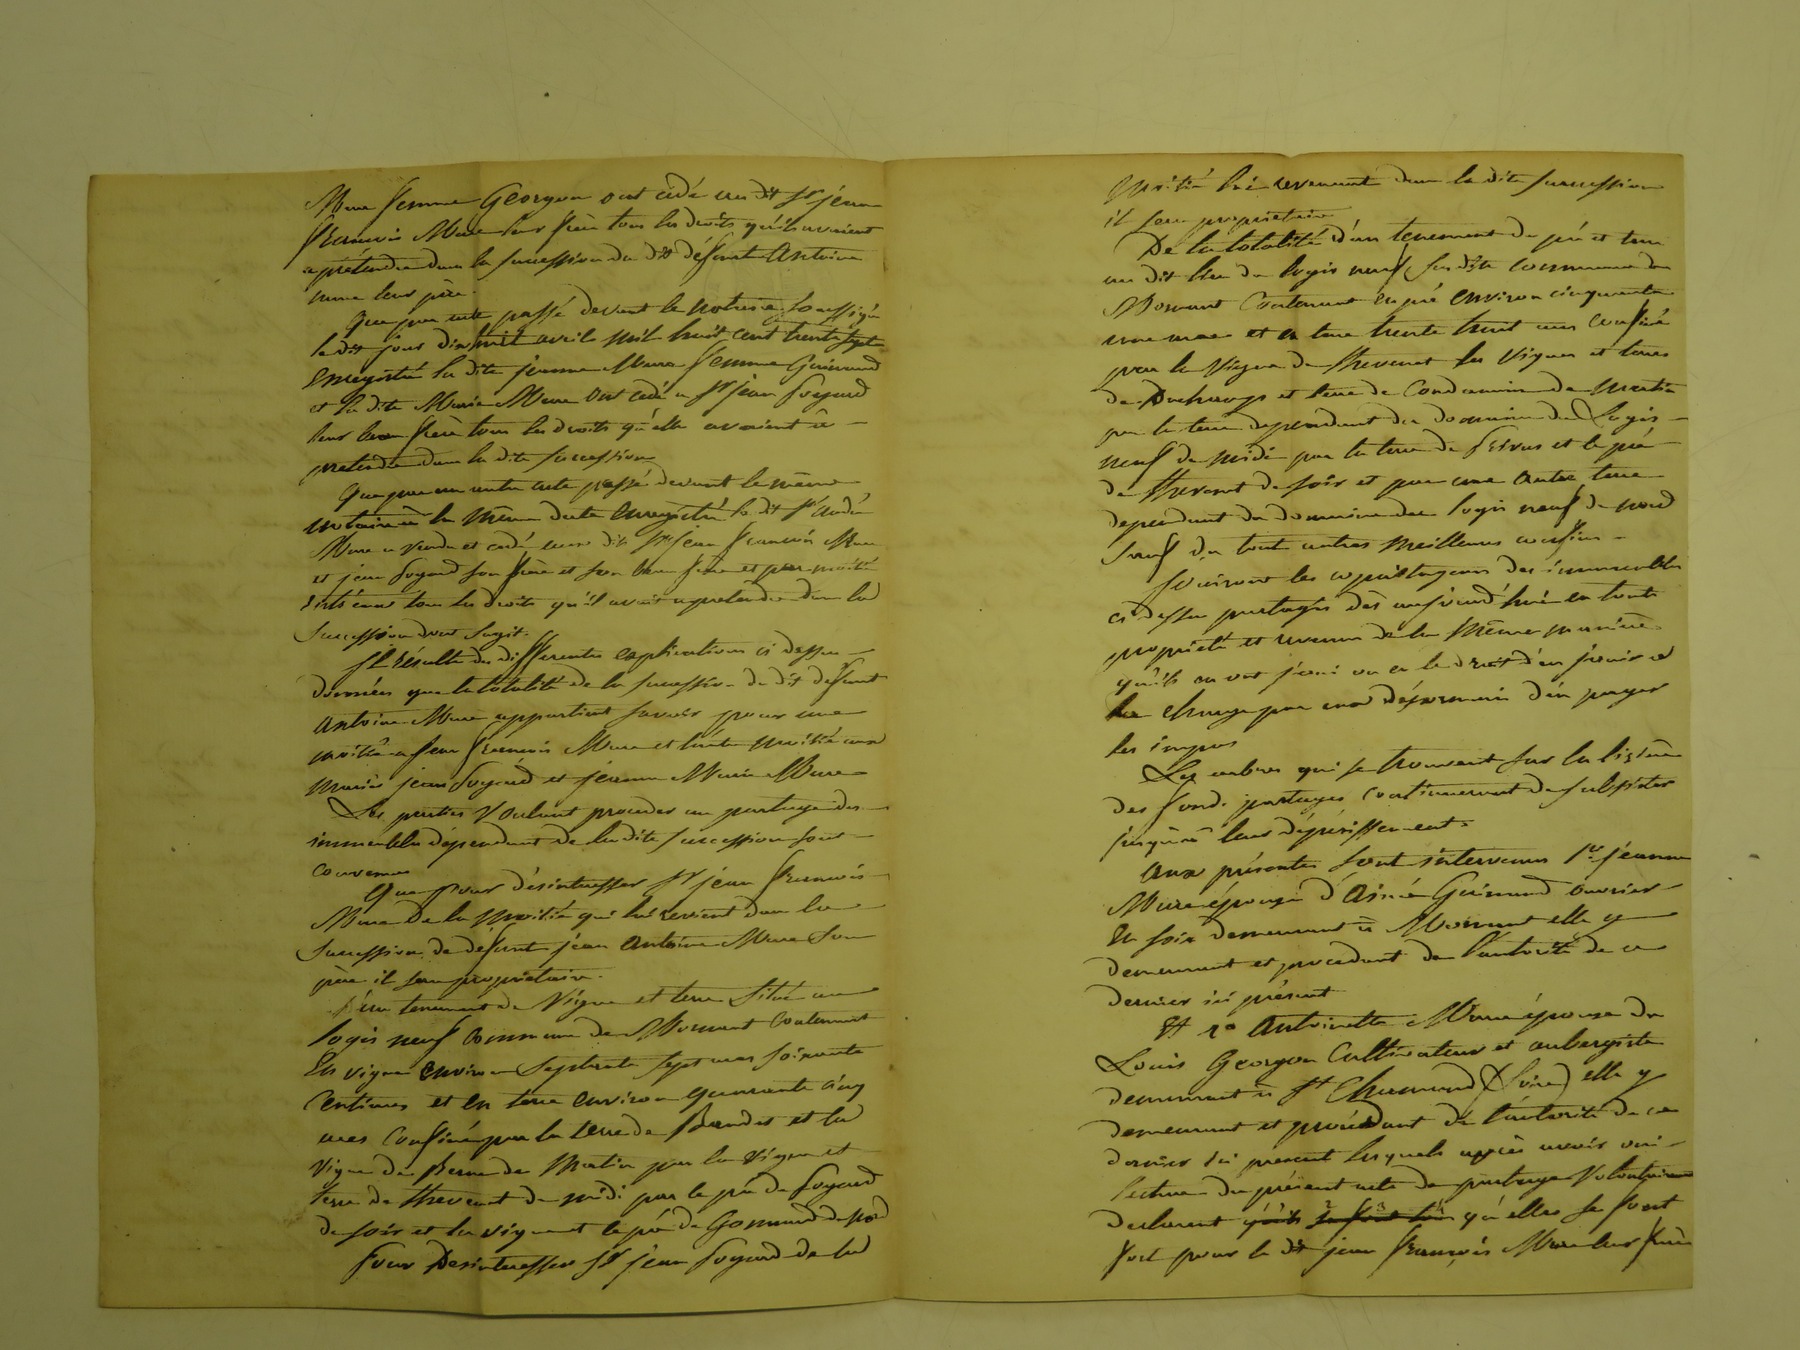 Mure femme Georgon ont cédé au dit Sr jean
françois Mure leur frère tous les droits qu'ils avaient
a prétendre dans la succession du dit défunt Antoine
mure leur père.
Que par acte passé devant le notaire soussigné
le dit jour dix huit avril mil huit cent trente sept
Enregistré la dite jeanne Mure femme Guinand
et la dite Marie Mure ont cédé a Sr jean Goyard
leur beau frère tous les droits qu'elle avaient à
pretendre dans la dite succession
Que par un autre acte passé devant le même
notaire à la même date enregistré le dit Sr André
Mure a vendu et cédé aux dits Srs jean françois Mure
et jean Goyard son frère et son beau frère et par moitié
entr'eux tous les droits qu'il avait a pretendre dans la
succession dont s'agit.
Il résulte des differentes explications ci dessus
données que la totalité de la succession du dit défunt
antoine Mure appartient savoir pour une
moitié a jean françois Mure et l'autre moitié aux
mariés jean Goyard et jeanne Marie Mure
Les parties Voulant proceder au partage des
immeubles dépendant de la dite succession sont
convenus
Que pour désintéresser Sr jean françois
Mure de la moitié qui lui revient dans la
succession de défunt jean antoine Mure son
père il sera proprietaire.
D'un tenement de Vigne et terre Situé au
logis neuf commune de Mornant contenant
En vigne environ Septante sept ares soixante
Centiares et en terre environ quarante cinq
ares confiné par la terre de et la
vigne de de Matin par la vigne et
terre de thevenet de midi par le pré de Goyard
de soir et la vigne et le pré de Gonnard de nord
Pour Desintéresser Sr jean Goyard de la
Moitié lui revenant dans la dite succession
il sera proprietaire
De la totalité d'un tenement de pré et terre
au dit lieu du logis neuf sus dite commune de
Mornant Contenant En pré environ cinquante
une ares et en terre trente huit ares confiné
par la Vigne de thevenet les Vignes et terres
de Duchamp et terre de Condamin de Matin
par la terre dependant du domaine du Logis
neuf de midi par la terre de et le pré
de thevenet de soir et par une autre terre
dependant du domaine du logis neuf de nord
sauf du tout autres meilleurs confins
Jouiront les copartageans des immeubles
ci dessus partagés dès aujourd'hui en toute
propriété et revenu de la même manière
qu'ils en ont joui ou eu le droit d'en jouir a
la charge par eux désormais d'en payer
les impos
Les arbres qui se trouvent sur la lisière
des fonds partagés continueront de subsister
jusqu'à leur dépérissement.
aux présentes sont intervenus 1° jeanne
Mure épouse d'Aimé Guinand ouvrier
En soie demeurant à Mornant elle y
demeurant et procedant de l'autorité de ce
dernier ici présent
Et 2° Antoinette Mure épouse de
Louis Georgon Cultivateur et aubergiste
demeurant à St Chamond (Loire) elle y
demeurant et procédant de l'autorité de ce
dernier ici present lesquels après avoir oui
lecture du présent acte de partage Volontairement
declarent qu'ils se font qu'elles se font
fort pour le dit jean françois Mure leur frère